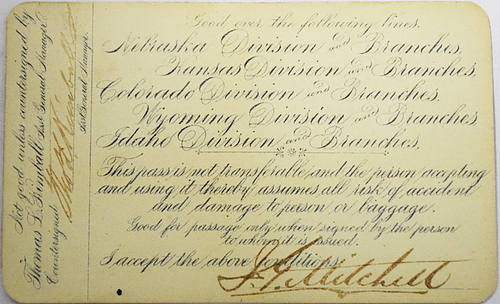 Good over the following lines.
Nebraska Division and Branches,
Kansas Division and Branches,
Colorado Division and Branches,
Wyoming Division and Branches
Idaho Division and Branches.
This pass is not transferable and the person accepting
and using it thereby assumes all risk of accident
and damage to person or baggage.
Good for passage only when signed by the person
to whom it is issued.
I accept the above conditions:
Mitchell
Not good unless countersigned by
Thomas L. Kimball Asst General Manager
Countersigned
Asst General Manager